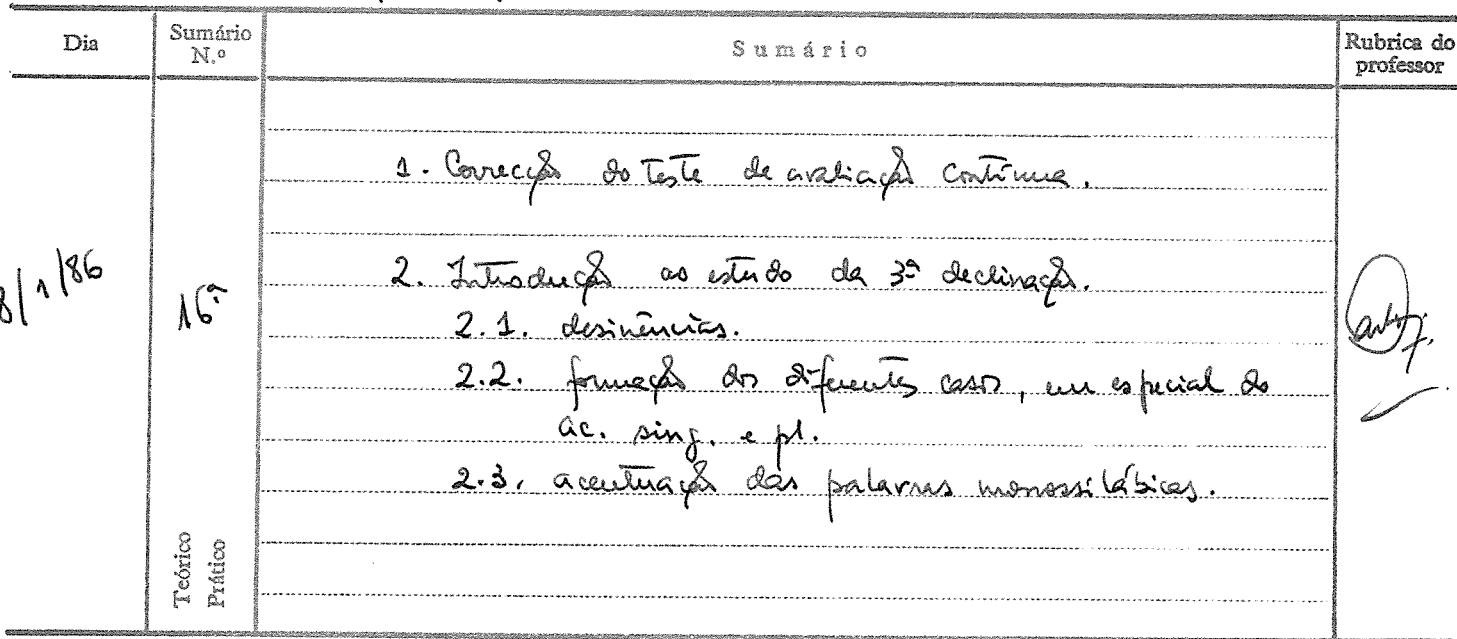 Dia
Sumário N.º
Sumário
Rubrica do professor
8/1/86
16ª
1. Correcção do Teste de avaliação contínua.
2. Introdução ao estudo da 3ª declinação.
2.1. desinências.
2.2. formação dos diferentes casos, em especial do
ac. sing. e pl.
2.3. acentuação das palavras monossilábicas.
Teórico
Prático